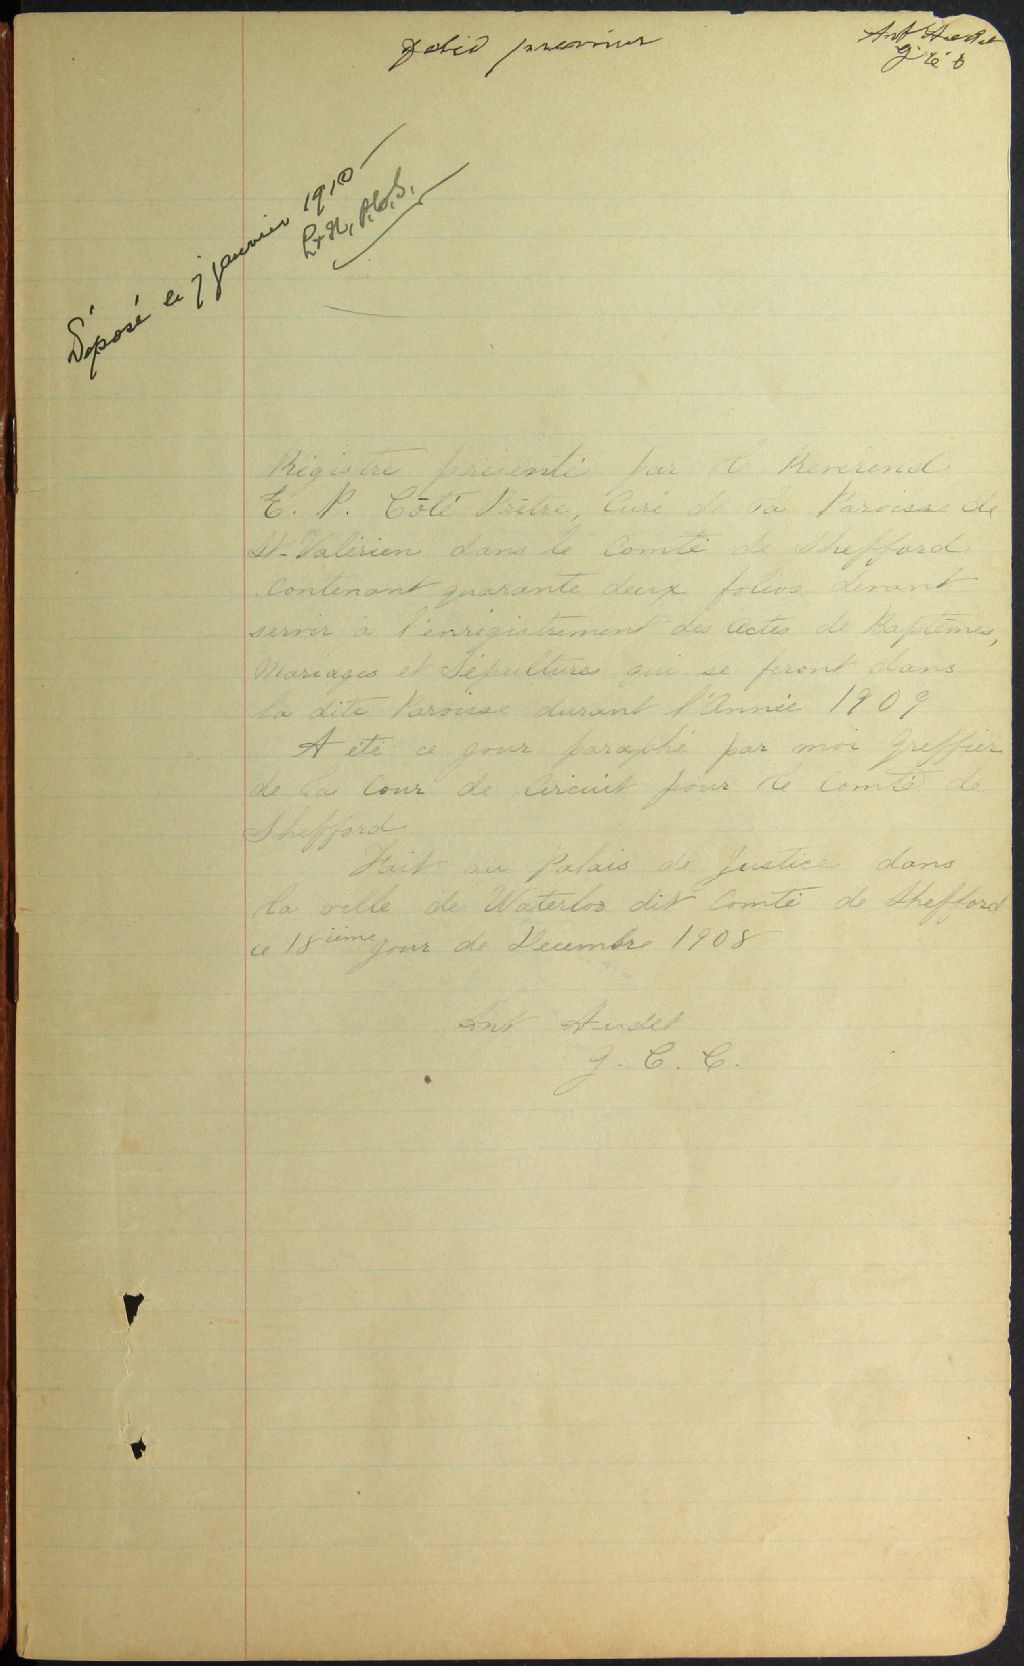 folio premier
Ant Audet
Déposé le 7 janvier 1910
Régistre présenté par le Révérend
E. P. Côté Prêtre, Curé de la Paroisse de
St-Valérien dans le Comté de Shefford
Contenant quarante deux folios devant
servir à l'enrégistrement des Actes de Baptêmes,
Mariages et Sépultures qui se feront dans
la dite Paroisse durant l'Année 1909
A été ce jour paraphé par moi Greffier
de la Cour de Circuit pour le Comté de
Shefford
Fait au Palais de Justice dans
la ville de Waterloo dit Comté de Shefford
ce 18ième jour de Décembre 1908
Ant Audet
G. C. C.